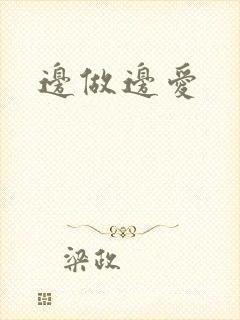 邊做邊愛
梁政